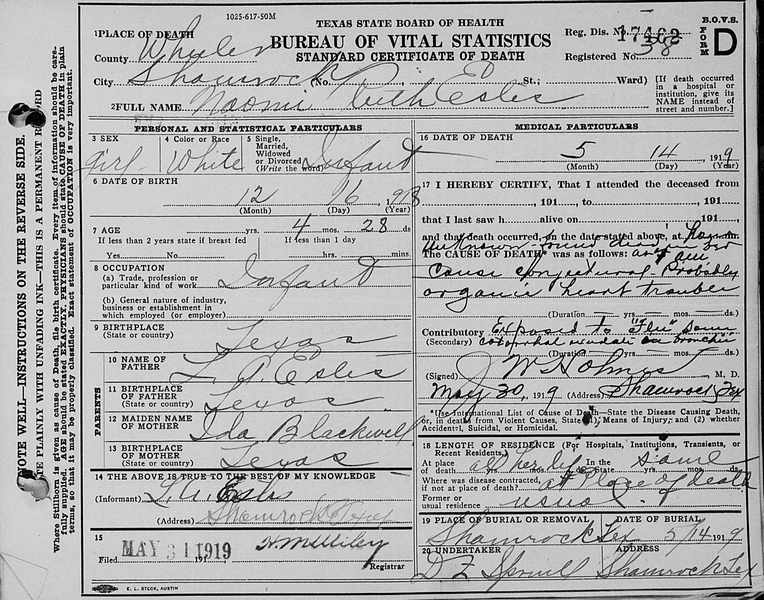 1025-617-50M
TEXAS STATE BOARD OF HEALTH
BUREAU OF VITAL STATISTICS
STANDARD CERTIFICATE OF DEATH
Reg. Dis. No. 17462
Registered No. 38
B.O.V.S.
FORM D
1 PLACE OF DEATH
County Wheeler
City Shamrock (No. St.; Ward)
[If death occurred in a hospital or institution, give its NAME instead of street and number.]
2 FULL NAME Naomi Ruth Estes
PERSONAL AND STATISTICAL PARTICULARS
3 SEX girl
4 Color or Race White
5 Single, Married, Widowed or Divorced (Write the word) Infant
6 DATE OF BIRTH
12 16 1918
(Month) (Day) (Year)
7 AGE yrs. 4 mos. 28 ds
If less than 2 years state if breast fed
If less than 1 day
Yes No hrs. mins.
8 OCCUPATION
(a) Trade, profession or particular kind of work Infant
(b) General nature of industry, business or establishment in which employed (or employer)
9 BIRTHPLACE
(State or country) Texas
PARENTS
10 NAME OF FATHER Estes
11 BIRTHPLACE OF FATHER (State or country) Texas
12 MAIDEN NAME OF MOTHER Ida Blackwell
13 BIRTHPLACE OF MOTHER (State or country) Texas
14 THE ABOVE IS TRUE TO THE BEST OF MY KNOWLEDGE
(Informant) Estes
(Address) Shamrock Tex
15
Filed MAY 31 1919 191
Registrar
E. L. STECK, AUSTIN
MEDICAL PARTICULARS
16 DATE OF DEATH
5 14 1919
(Month) (Day) (Year)
17 I HEREBY CERTIFY, That I attended the deceased from
, 191 , to , 191 ,
that I last saw h alive on , 191 ,
and that death occurred, on the date stated above, at
Unknown found dead in
The CAUSE OF DEATH* was as follows:
Cause conjectural Probably
organic heart trouble
(Duration) yrs. mos. ds.
Contributory Exposed to "Flu"
(Secondary)
(Duration) yrs. mos. ds.
(Signed) J W Holmes M. D.
May 30, 1919 (Address) Shamrock, Tex
*Use International List of Cause of Death—State the Disease Causing Death, or, in deaths from Violent Causes, State (1) Means of Injury; and (2) whether Accident, Suicidal, or Homicidal.
18 LENGTH OF RESIDENCE (For Hospitals, Institutions, Transients, or Recent Residents.)
At place of death all her life In the State same
Where was disease contracted, if not at place of death? at Place of death
Former or usual residence usual
19 PLACE OF BURIAL OR REMOVAL DATE OF BURIAL
Shamrock Tex 5/14 1919
20 UNDERTAKER ADDRESS
Shamrock Tex
NOTE WELL—INSTRUCTIONS ON THE REVERSE SIDE.
PLAINLY WITH UNFADING INK—THIS IS A PERMANENT
Where Stillborn is given as cause of Death, file birth certificate. Every item of information should be carefully supplied. AGE should be stated EXACTLY. PHYSICIANS should state CAUSE OF DEATH in plain terms, so that it may be properly classified. Exact statement of OCCUPATION is very important.